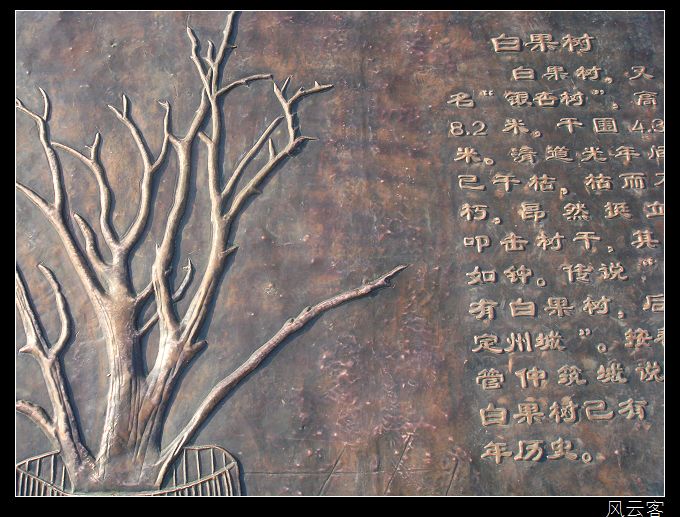 白果树
白果树，又
名“银杏树”，高
8.2 米，干围 4.8
米。清道光年间
已干枯，枯而不
朽，昂然挺立
叩击树干，其
如钟。传说“
有白果树，后
定州城”。按
管仲筑城说
白果树已有
年历史。
风云客